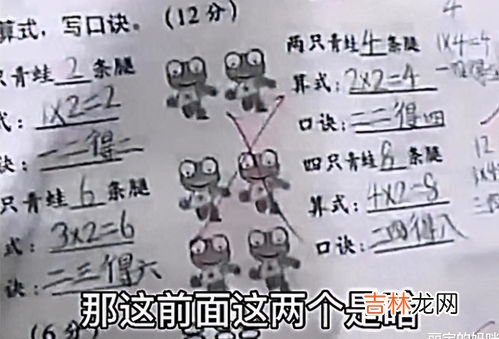 算式，写口诀。（12分）
只青蛙 2 条腿
式：1×2=2
诀：一二得二
只青蛙 6 条腿
式：3×2=6
诀：二三得六
（6分
两只青蛙 4 条腿
算式：2×2=4
口诀：二二得四
四只青蛙 8 条腿
算式：4×2=8
口诀：二四得八
4
1×4=4
12
那这前面这两个是
吉林龙网